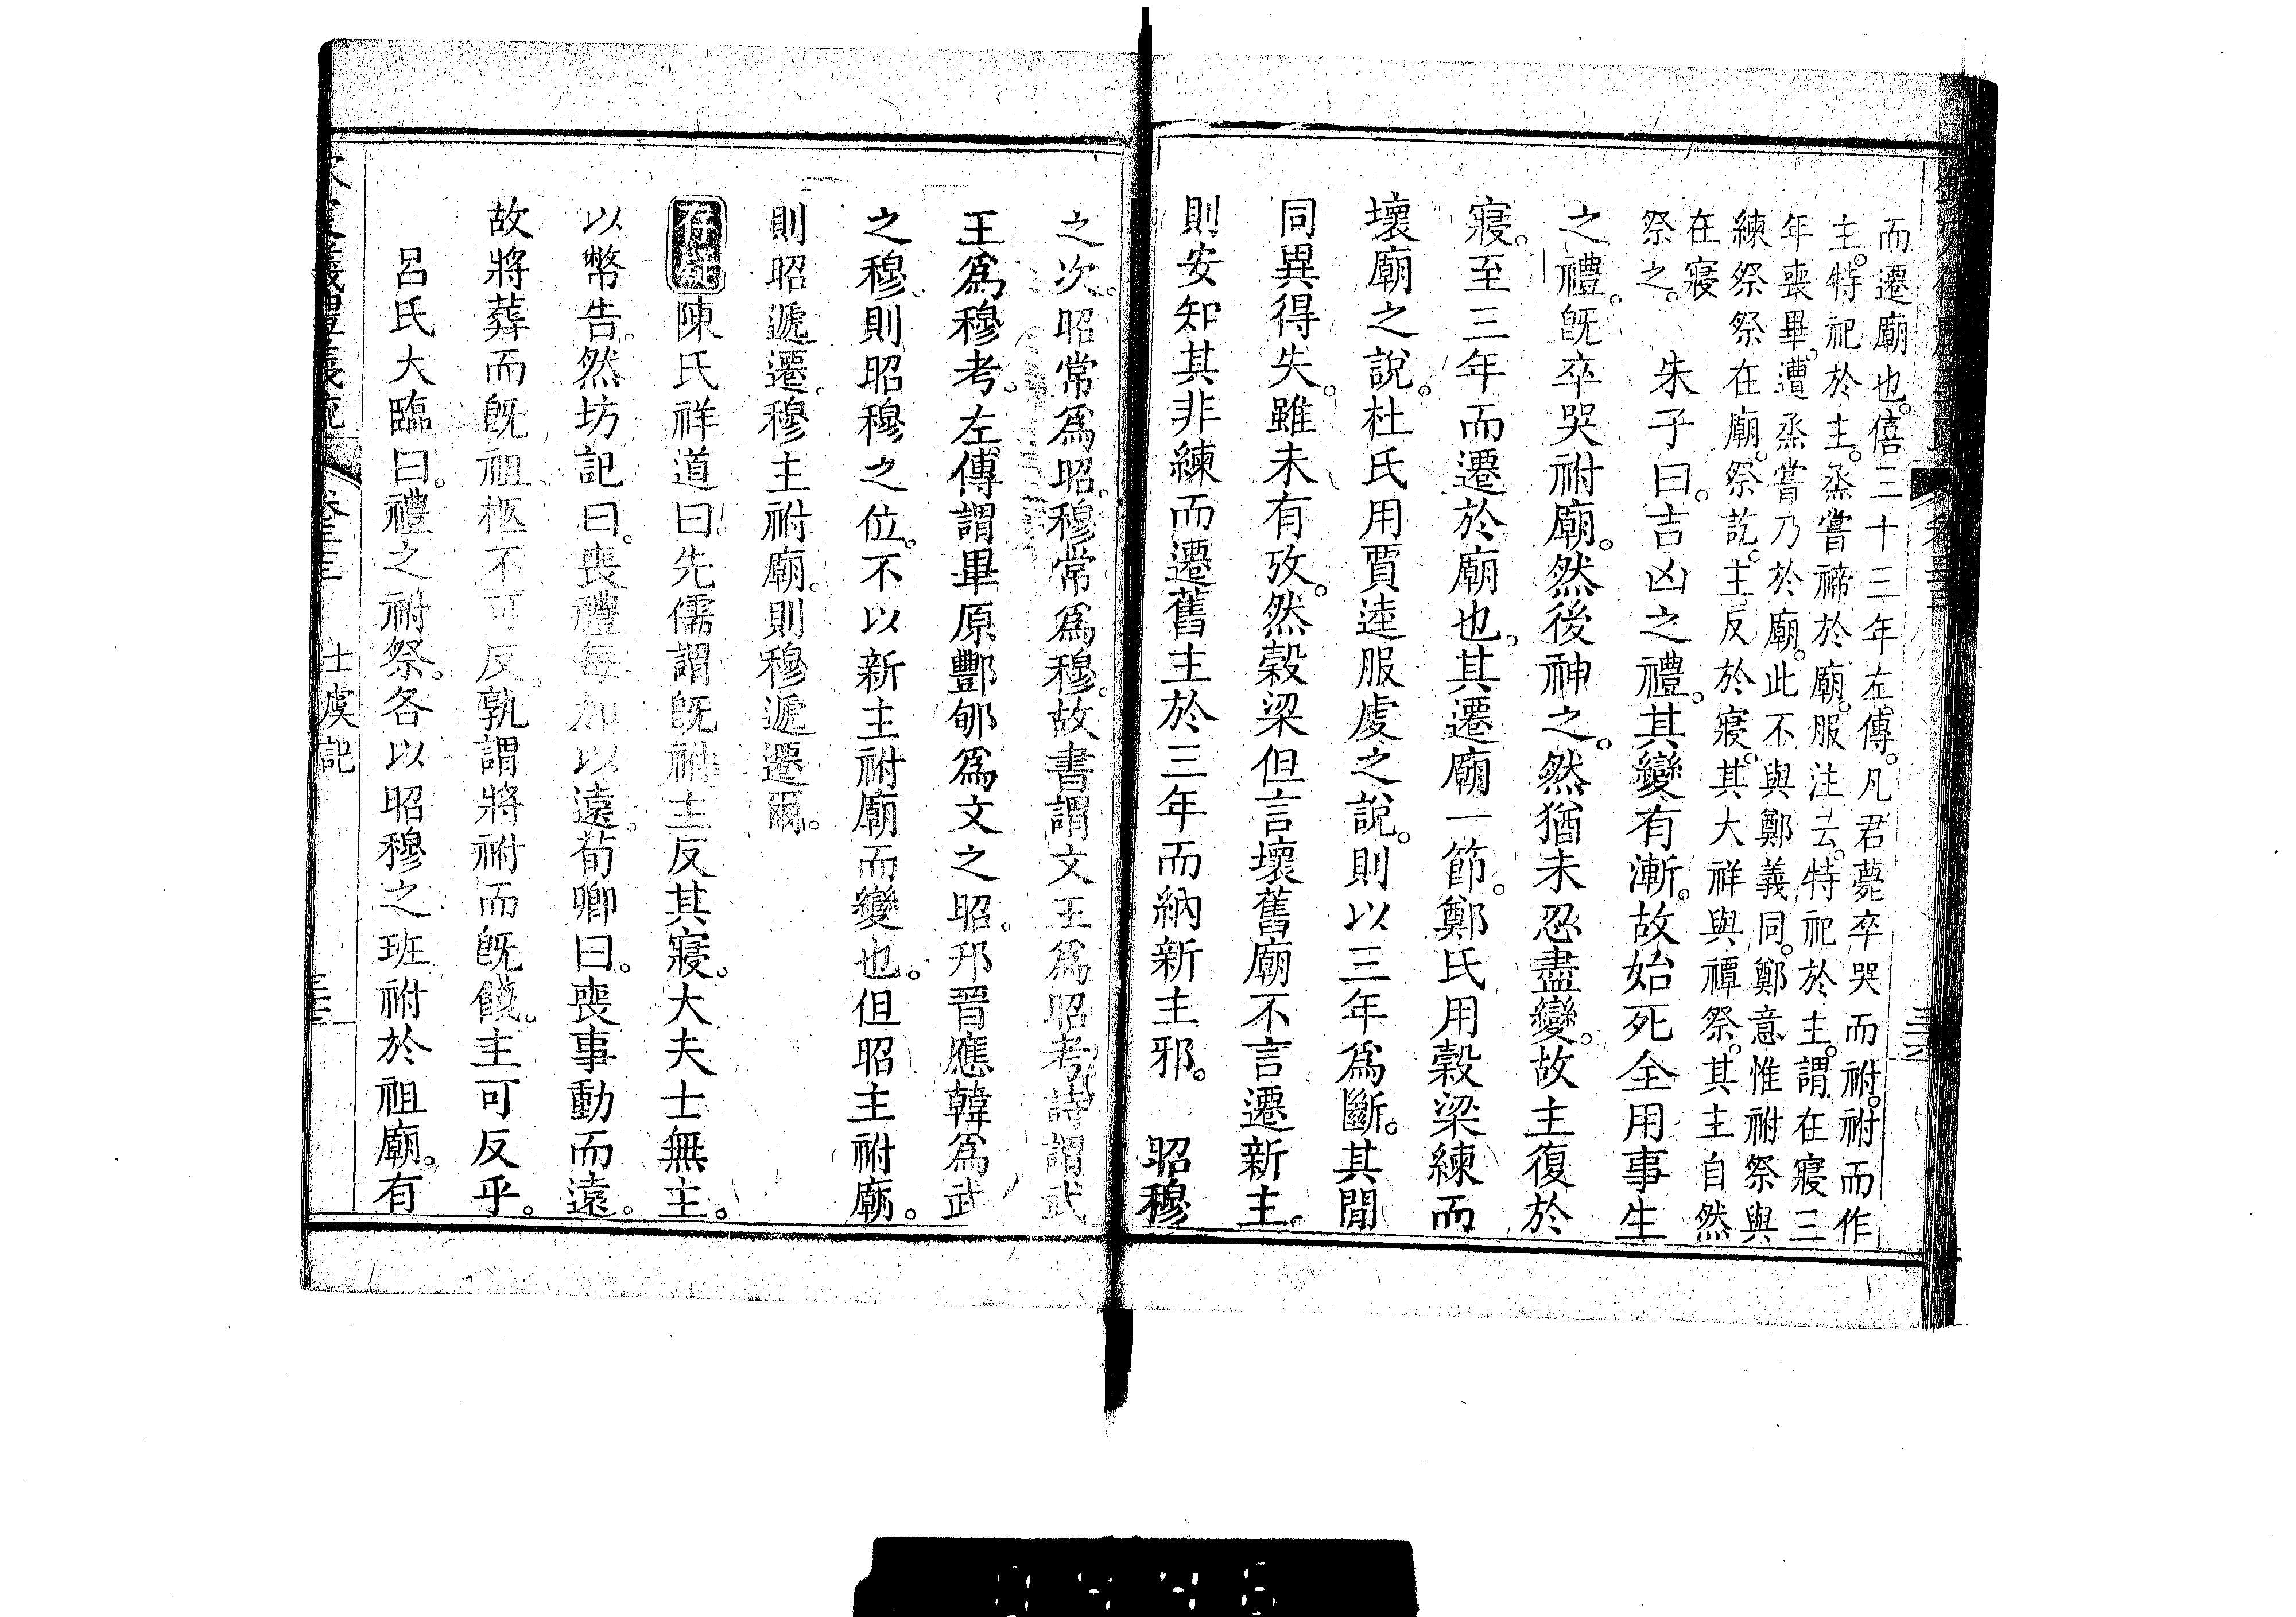 而遷廟也。僖三十三年左傳。凡君薨卒哭而祔。祔而作
主。特祀於主。烝嘗禘於廟。服注云。特祀於主。謂在寢三
年喪畢。遭烝嘗乃於廟。此不與鄭義同。鄭意惟祔祭與
練祭祭在廟。祭訖。主反於寢。其大祥與禫祭。其主自然
在寢
祭之。 朱子曰。吉凶之禮。其變有漸。故始死全用事生
之禮。旣卒哭祔廟。然後神之。然猶未忍盡變。故主復於
寢。至三年而遷於廟也。其遷廟一節。鄭氏用穀梁練而
壞廟之說。杜氏用賈逵服虔之說。則以三年爲斷。其閒
同異得失。雖未有攷。然穀梁但言壞舊廟不言遷新主。
則安知其非練而遷舊主於三年而納新主邪。 昭穆
之次。昭常爲昭。穆常爲穆。故書謂文王爲昭考。詩謂武
王爲穆考。左傳謂畢原酆郇爲文之昭。邘晉應韓爲武
之穆。則昭穆之位。不以新主祔廟而變也。但昭主祔廟。
則昭遞遷。穆主祔廟。則穆遞遷爾。
存疑陳氏祥道曰。先儒謂旣祔主反其寢。大夫士無主。
以幣告。然坊記曰。喪禮每加以遠。荀卿曰。喪事動而遠。
故將葬而旣祖柩不可反。孰謂將祔而旣餞。主可反乎。
呂氏大臨曰。禮之祔祭。各以昭穆之班祔於祖廟。有
士虞記